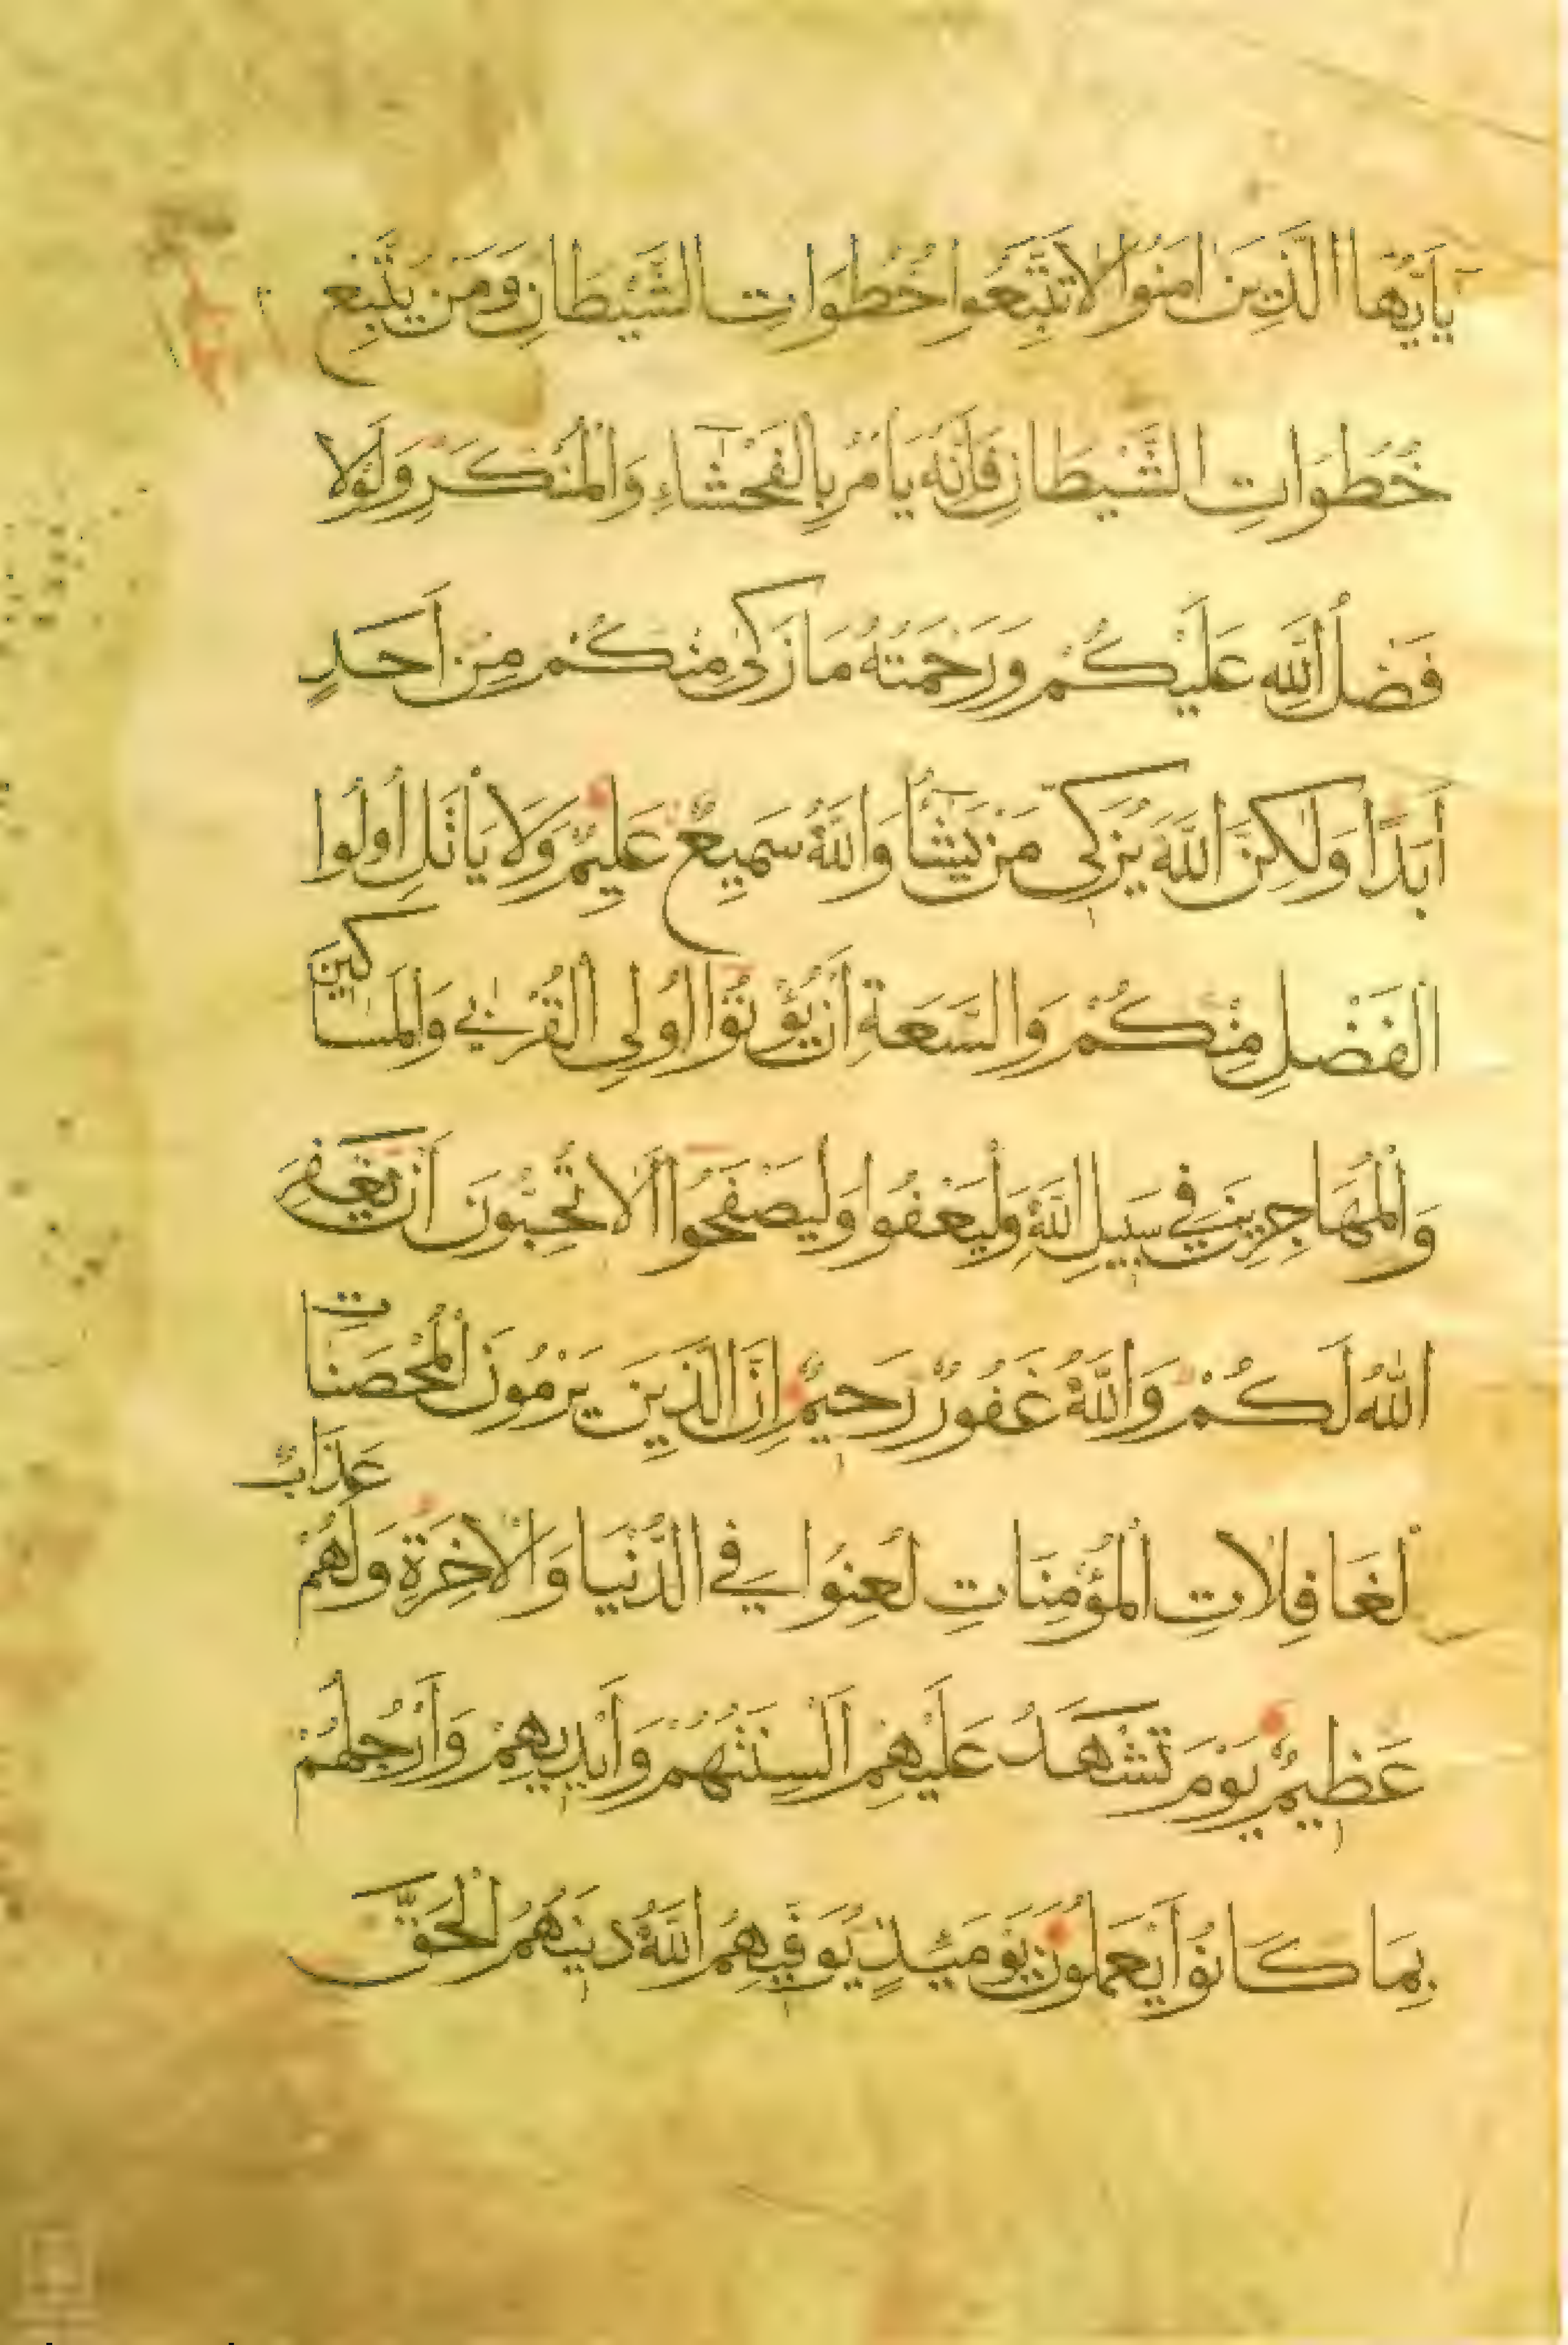 يَاأَيُّهَا الَّذِينَ امَنُوا لَا تَتَّبِعُوا خُطُوَاتِ الشَّيْطَانِ وَمَن يَتَّبِع
خُطُوَاتِ الشَّيْطَانِ فَإِنَّهُ يَامُرُ بِالْفَحْشَاءِ وَالْمُنْكَرِ وَلَوْلَا
فَضْلُ اللَّهِ عَلَيْكُمْ وَرَحْمَتُهُ مَا زَكَى مِنْكُمْ مِنْ أَحَدٍ
أَبَدًا وَلَكِنَّ اللَّهَ يُزَكِّي مَنْ يَشَاءُ وَاللَّهُ سَمِيعٌ عَلِيمٌ وَلَا يَاتَلِ أُولُوا
الْفَضْلِ مِنْكُمْ وَالسَّعَةِ أَنْ يُؤْتُوا أُولِي الْقُرْبَى وَالْمَسَاكِينَ
وَالْمُهَاجِرِينَ فِي سَبِيلِ اللَّهِ وَلْيَعْفُوا وَلْيَصْفَحُوا أَلَا تُحِبُّونَ أَنْ يَغْفِرَ
اللَّهُ لَكُمْ وَاللَّهُ غَفُورٌ رَحِيمٌ إِنَّ الَّذِينَ يَرْمُونَ الْمُحْصَنَاتِ
لْغَافِلَاتِ الْمُؤْمِنَاتِ لُعِنُوا فِي الدُّنْيَا وَالْآخِرَةِ وَلَهُمْ عَذَابٌ
عَظِيمٌ يَوْمَ تَشْهَدُ عَلَيْهِمْ أَلْسِنَتُهُمْ وَأَيْدِيهِمْ وَأَرْجُلُهُمْ
بِمَا كَانُوا يَعْمَلُونَ يَوْمَئِذٍ يُوَفِّيهِمُ اللَّهُ دِينَهُمُ الْحَقَّ